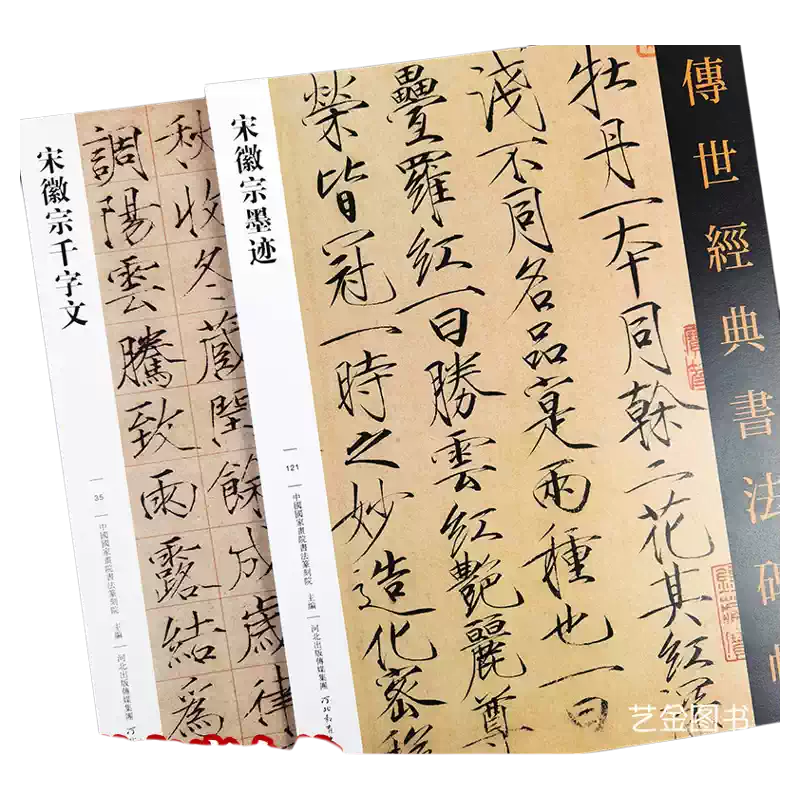 傳世經典書法碑帖
牡丹一本同榦二花其紅深
淺不同名品寔兩種也一曰
疊羅紅一曰勝雲紅艷麗尊
榮皆冠一時之妙造化密移
宋徽宗墨迹
121
中國國家畫院書法篆刻院 主編
河北出版傳媒集團
秋收冬藏閏餘成歲律
調陽雲騰致雨露結爲
宋徽宗千字文
35
中國國家畫院書法篆刻院 主編
河北出版傳媒集團
艺金图书